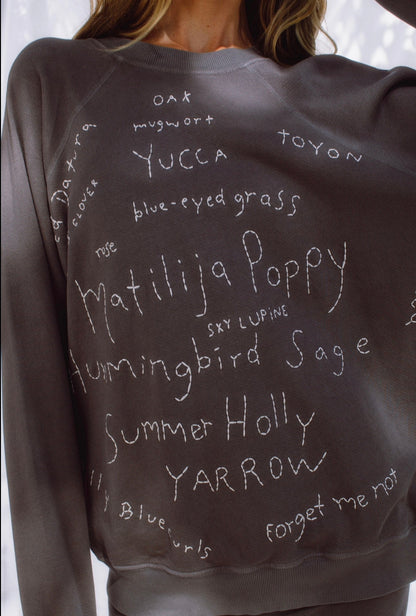 OAK
mugwort
TOYON
YUCCA
Datura
CLOVER
blue-eyed grass
rose
Matilija Poppy
SKY LUPINE
Hummingbird Sage
Summer Holly
YARROW
Forget me not
Blue